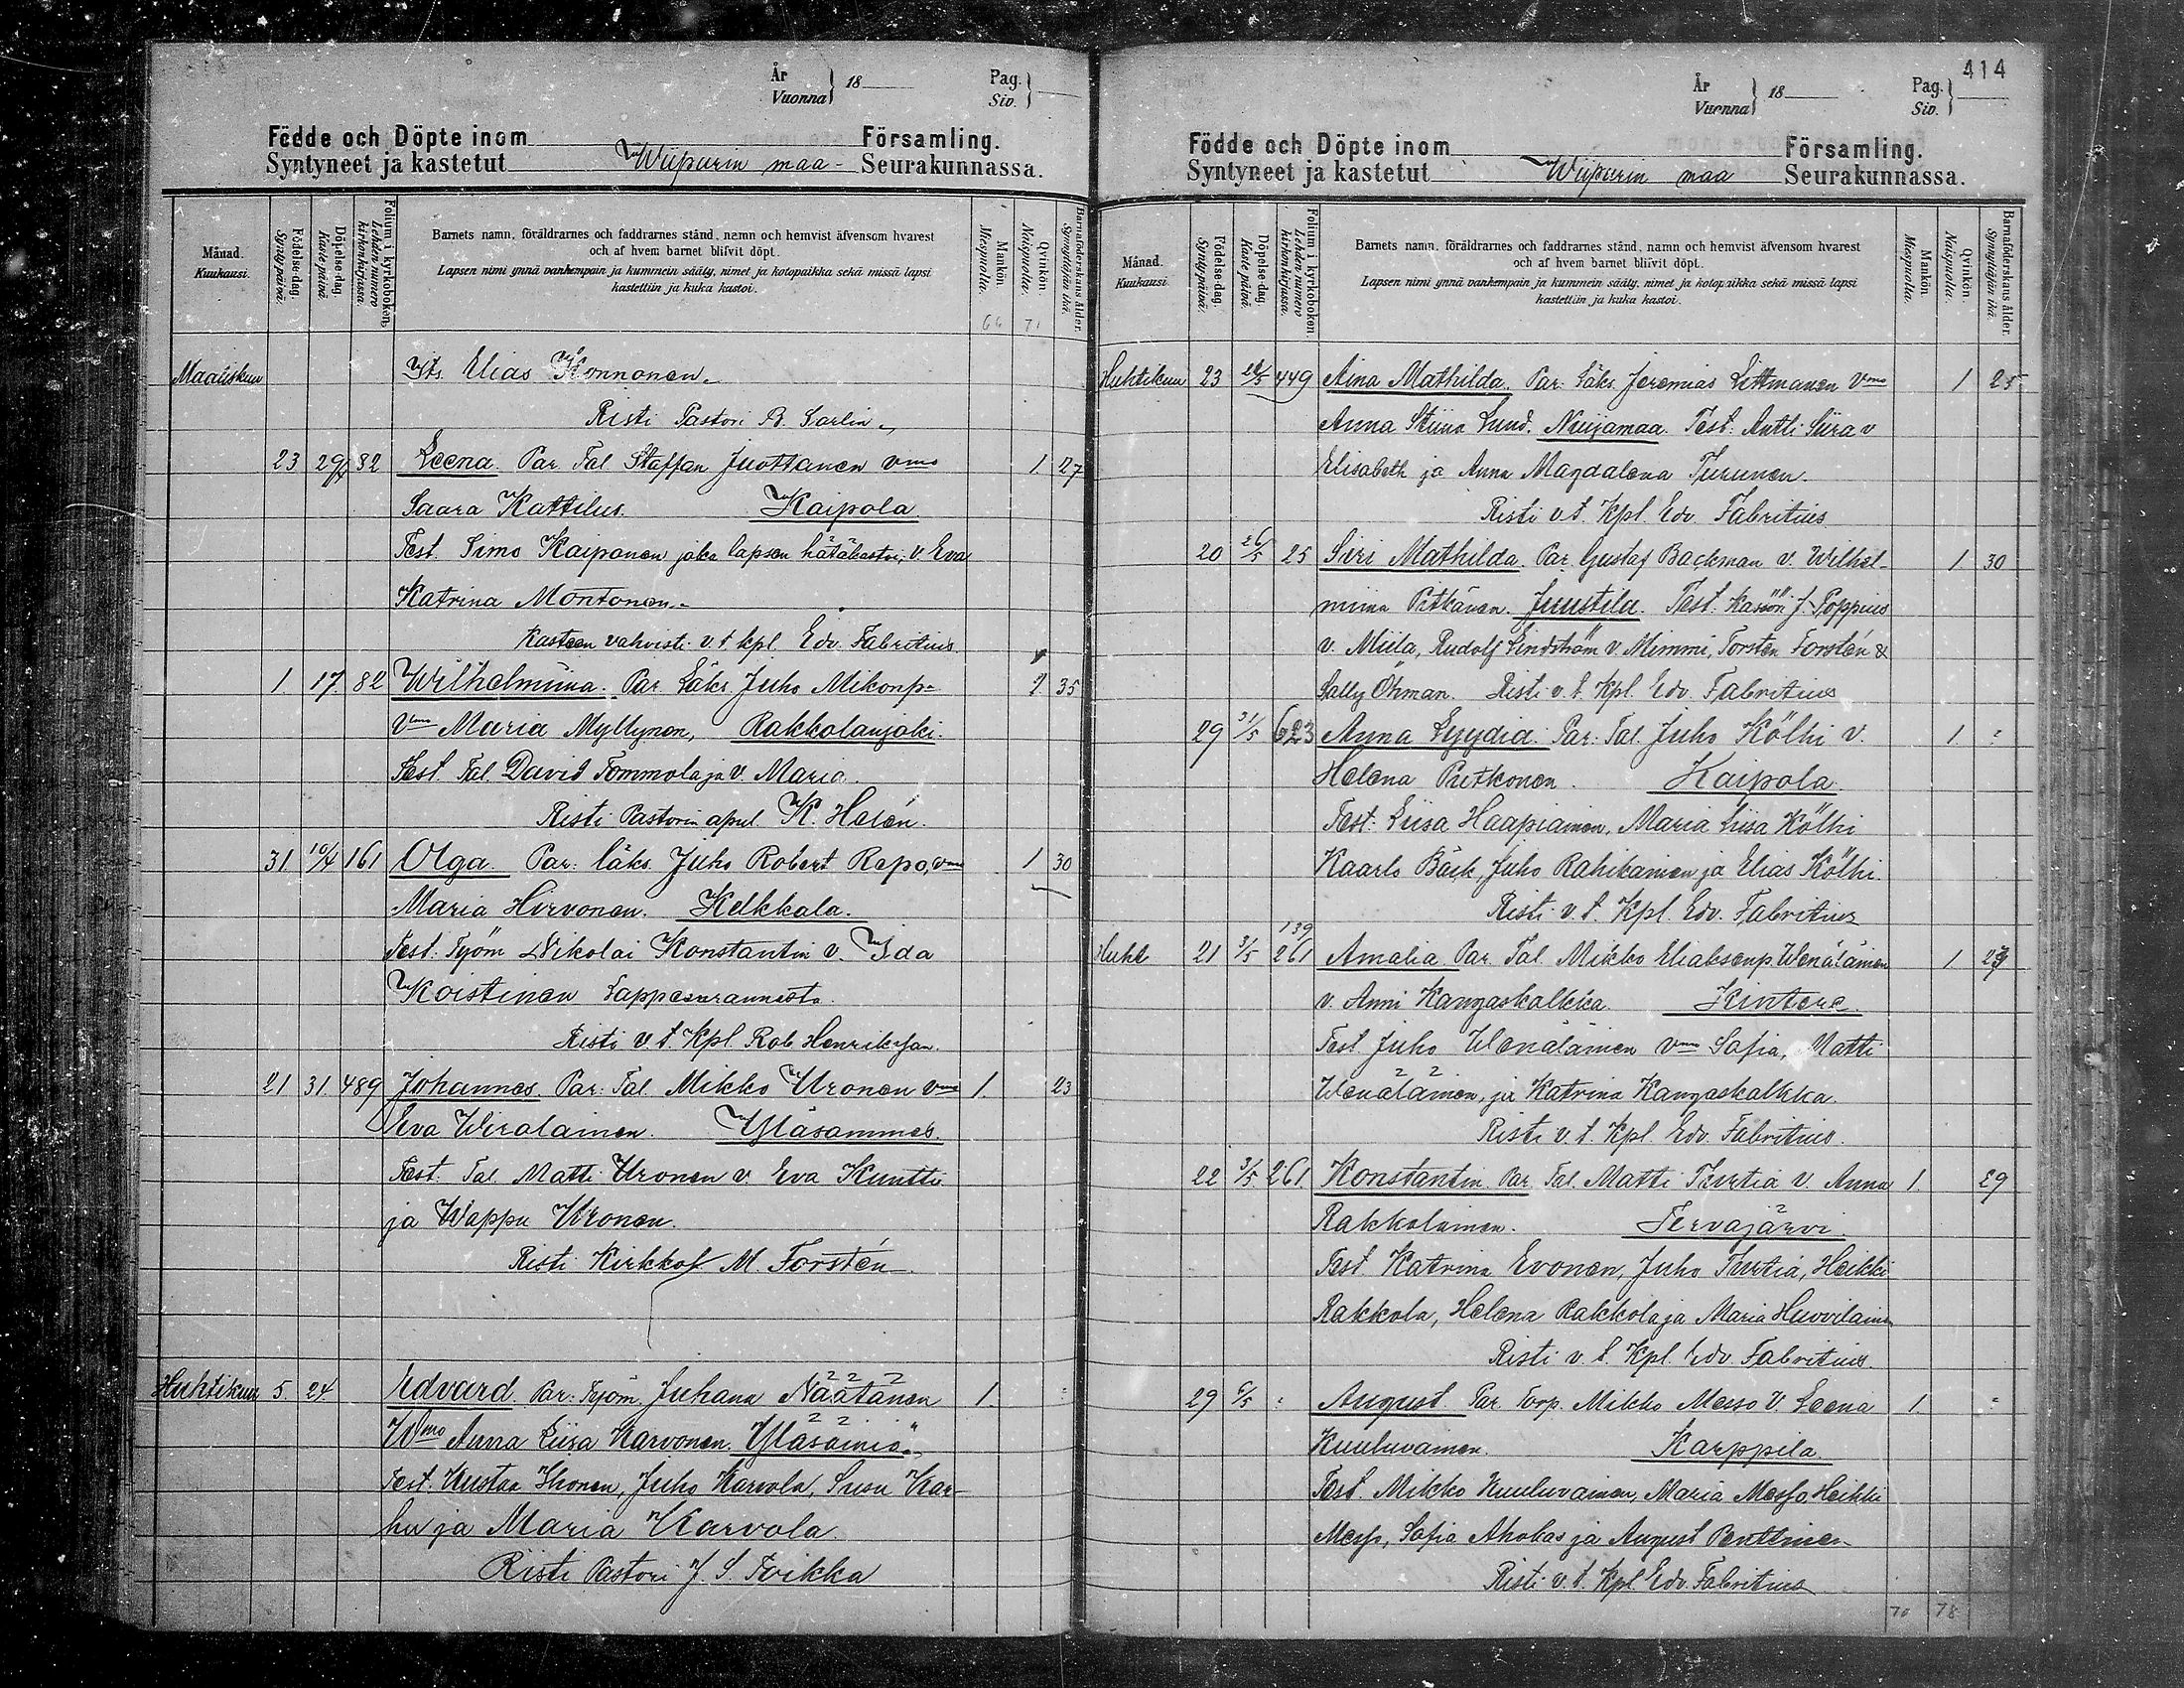 År
Vuonna } 18
Pag.
Siv. }
Födde och Döpte inom Församling.
Syntyneet ja kastetut Wiipurin maa- Seurakunnassa.
Månad.
Kuukausi.
Födelse-dag.
Syntypäivä.
Döpelse-dag.
Kastepäivä.
Folium i kyrkoboken.
Lehden numero kirkonkirjassa.
Barnets namn, föräldrarnes och faddrarnes stånd, namn och hemvist äfvensom hvarest
och af hvem barnet blifvit döpt.
Lapsen nimi ynnä vanhempain ja kummein sääty, nimet ja kotopaikka sekä missä lapsi
kastettiin ja kuka kastoi.
Mankön.
Miespuolia.
Qvinkön.
Naispuolia.
Barnaföderskans ålder.
Synnyttäjän ikä.
66 71
Maaliskuu Its. Elias Konnonen.
Risti Pastori B. Sarlin.
23 29/4 82 Leena. Par. Tal Staffan Juottanen vmo 1 27
Saara Kattilus. Kaipola
Test. Simo Kaiponen joka lapsen hätäkastoi, v. Eva
Katrina Montonen.
Kasteen vahvisti v. t kpl. Edv. Fabritius
1 17 82 Wilhelmiina. Par. Läks Juho Mikonp. 1 35
Vmo Maria Myllynen, Rakkolanjoki.
Test. Tal. David Tommola ja v. Maria.
Risti Pastorin apul. K. Helén.
31 10/4 161 Olga. Par: läks. Juho Robert Repo, vmo 1 30
Maria Hirvonen. Kelkkala.
Test: Työm Nikolai Konstantin v. Ida
Koistinen Lappeenrannasta.
Risti v. t. Kpl. Rob Henriksson.
21 31. 489 Johannes. Par: Tal. Mikko Uronen vmo 1. 23
Eva Wirolainen. Yläsommee.
Test: Tal Matti Uronen v Eva Kuntti
ja Wappu Uronen.
Risti Kirkkoh M. Forstén
Huhtikuu 5 24. Edvard. Par: Työm. Juhana Näätänen 1. "
Wmo Anna Liisa Karvonen. Yläsäiniö.
Test. Kustaa Ihonen, Juho Karvola, Susu Kar-
hu ja Maria Karvola.
Risti Pastori J. S. Toikka
414
År
Vuonna } 18
Pag.
Siv. }
Födde och Döpte inom Församling.
Syntyneet ja kastetut Wiipurin maa Seurakunnassa.
Månad.
Kuukausi.
Födelse-dag.
Syntypäivä.
Döpelse-dag.
Kastepäivä.
Folium i kyrkoboken.
Lehden numero kirkonkirjassa.
Barnets namn, föräldrarnes och faddrarnes stånd, namn och hemvist äfvensom hvarest
och af hvem barnet blifvit döpt.
Lapsen nimi ynnä vanhempain ja kummein sääty, nimet ja kotopaikka sekä missä lapsi
kastettiin ja kuka kastoi.
Mankön.
Miespuolia.
Qvinkön.
Naispuolia.
Barnaföderskans ålder.
Synnyttäjän ikä.
Huhtikuu 23 449 Aina Mathilda. Par: Läks. Jeremias Littmanen Vmo 1 25
Anna Stiina Lund. Nuijamaa. Test: Antti Siira v
Elisabeth ja Anna Magdalena Turunen.
Risti v. t. Kpl. Edv. Fabritius
20 26/5 25 Siiri Mathilda. Par. Gustaf Backman v. Wilhel- 1 30
miina Pitkänen. Juustila. Test. Kassöri J. Poppius
v. Miila, Rudolf Lindström v. Mimmi, Torsten Forstén &
Sally Öhman. Risti v. t. Kpl. Edv. Fabritius
29 31/5 623 Anna Lyydia. Par: Tal. Juho Kölhi v. 1. "
Helena Putkonen. Kaipola.
Test: Liisa Haapiainen, Maria Liisa Kölhi
Kaarlo Bäck, Juho Rahikainen ja Elias Kölhi.
Risti v. t. Kpl. Edv. Fabritius
139
Huht 21 3/5 261 Amalia Par. Tal. Mikko Eliaksenp. Wenäläinen 1
v. Anni Kangaskalkka. Kintere.
Test Juho Wenäläinen Vmo Sofia, Matti
Wenäläinen, ja Katrina Kangaskalkka.
Risti v. t. Kpl. Edv. Fabritius.
22 3/5 261. Konstantin. Par Tal. Matti Turtia v. Anna 1. 29
Rakkolainen. Tervajärvi
Test. Katrina Evonen, Juho Turtia, Heikki
Rakkola, Helena Rakkola ja Maria Huovilainen
Risti v. t. Kpl. Edv. Fabritius.
29 6/5 " August. Par Torp. Mikko Messo V. Leena 1. "
Kuuluvainen. Karppila.
Test. Mikko Kuuluvainen, Maria Messo, Heikki
Messo, Sofia Ahokas ja August Penttinen
Risti v. t. Kpl Edv. Fabritius
70 78